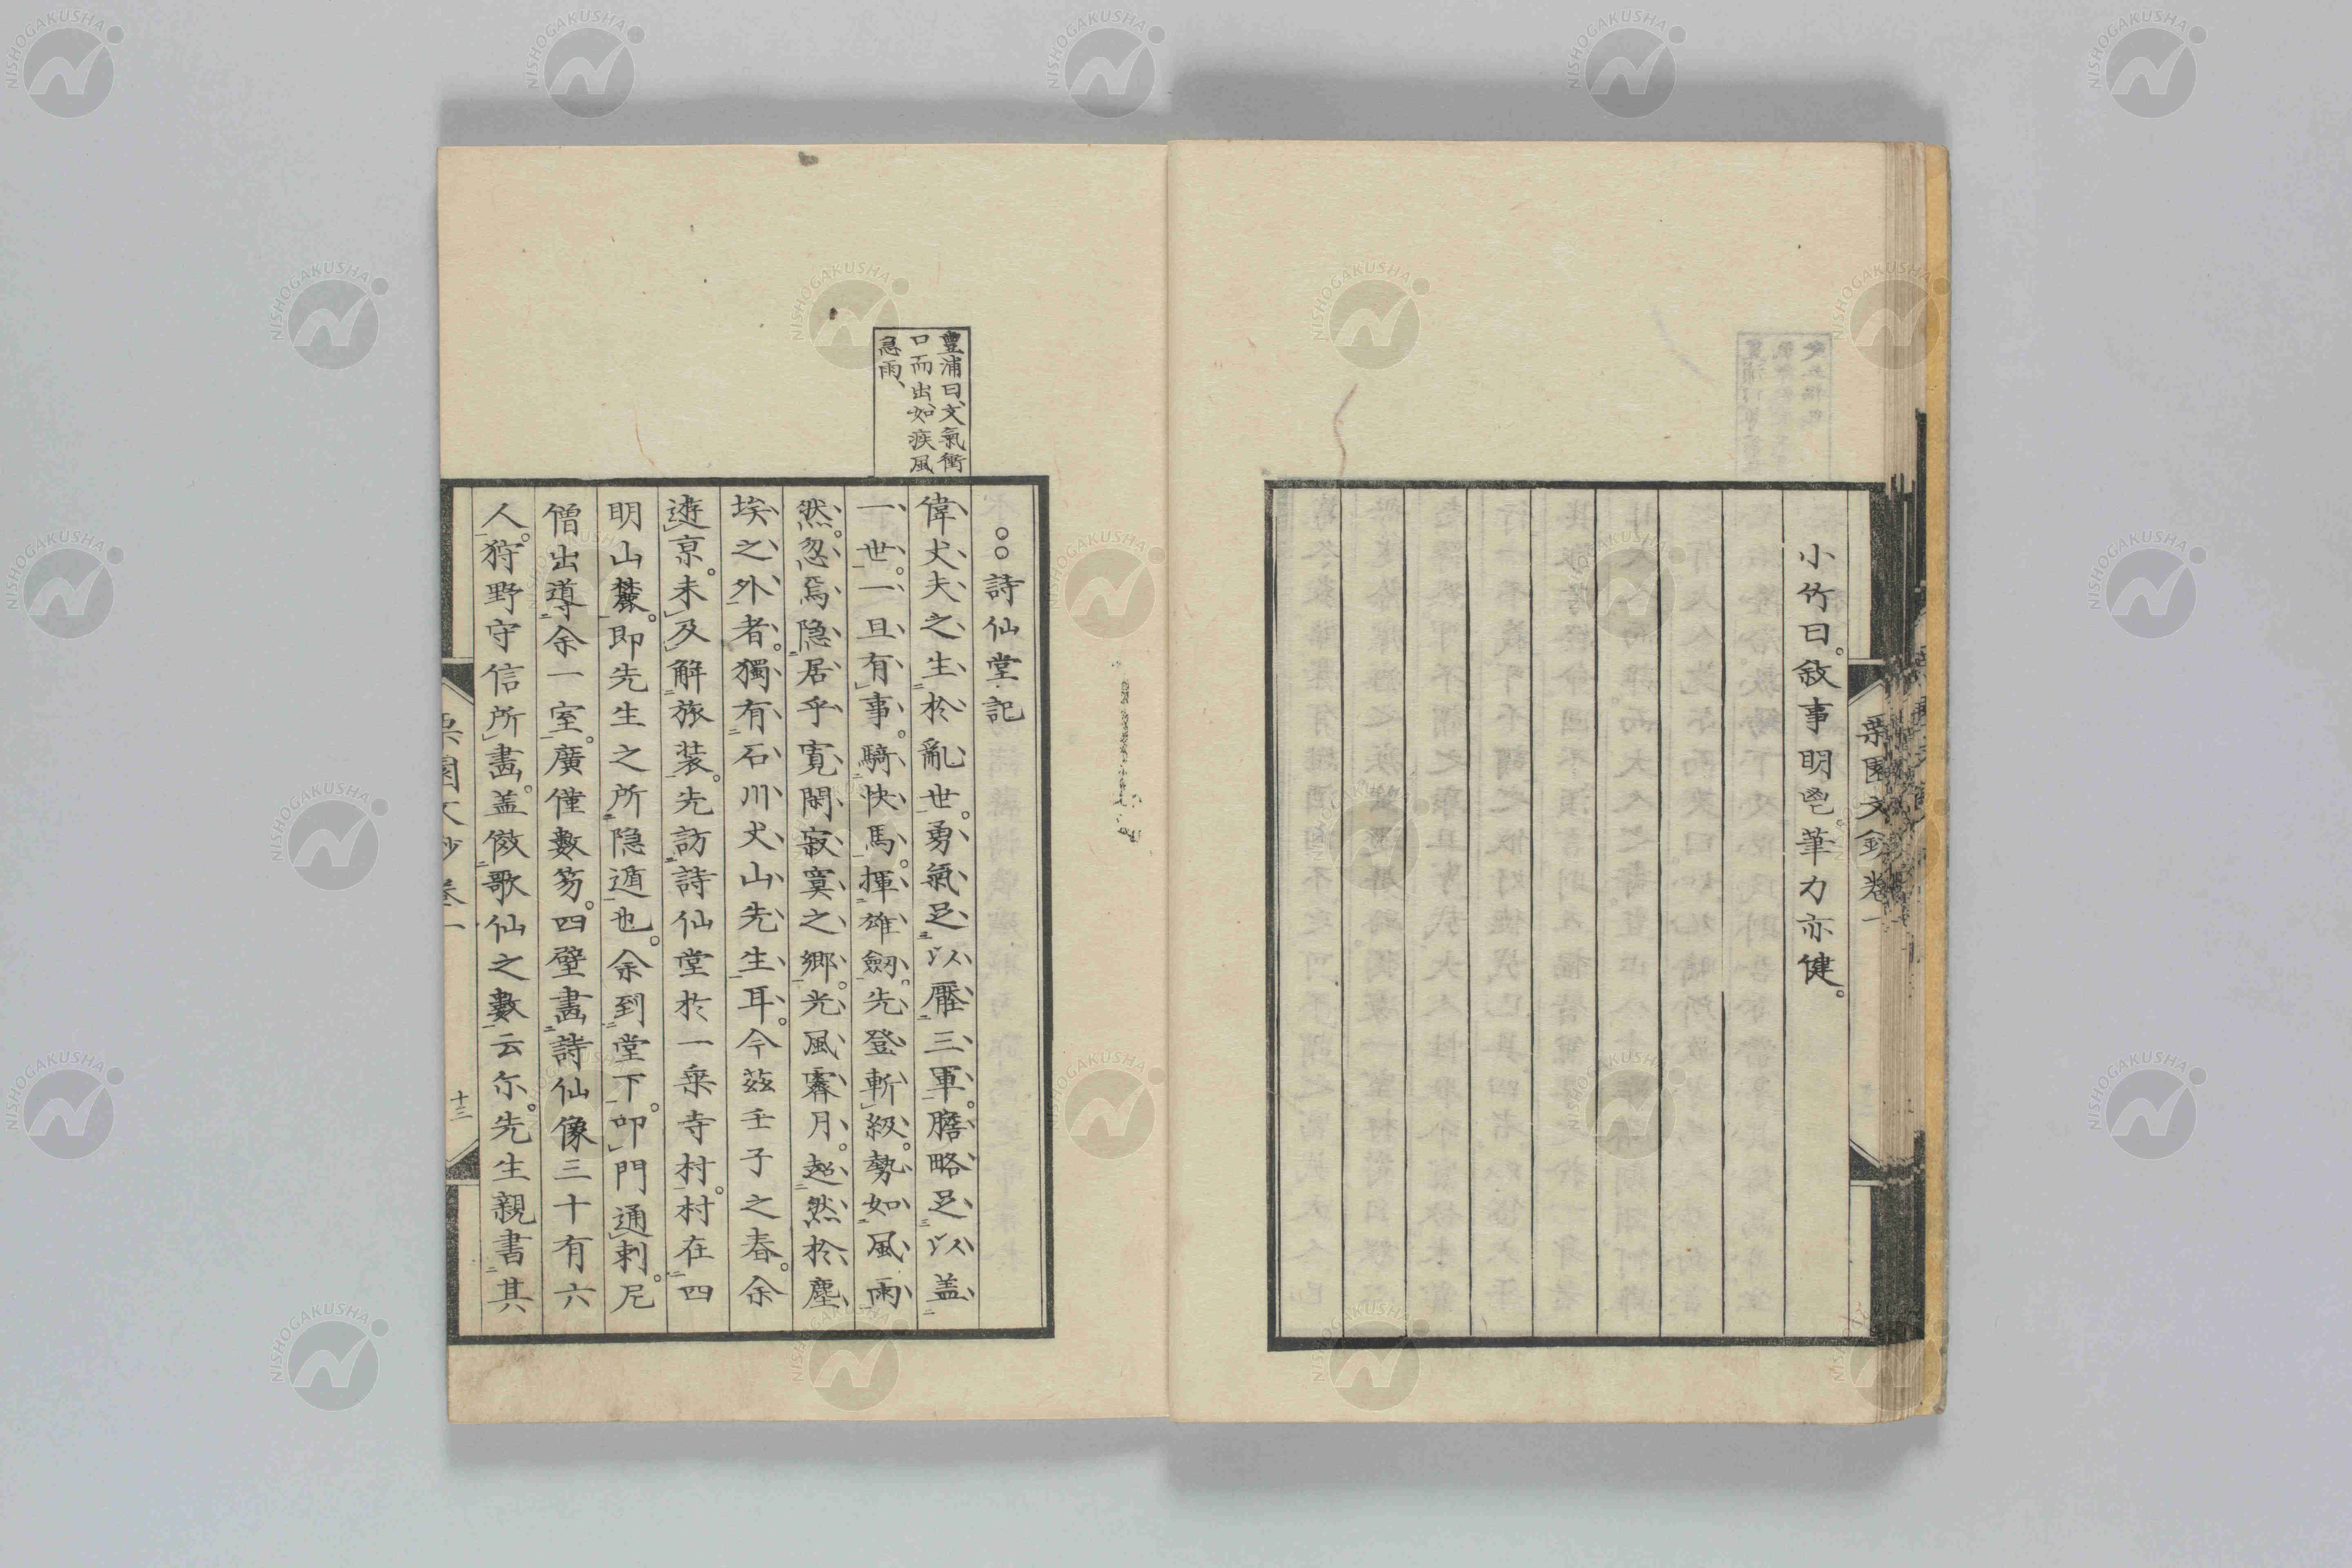 小竹曰。敘事明鬯。筆力亦健。
栗園文鈔卷一
豊浦曰、文氣衝
口而出、如疾風
急雨、
詩仙堂記
偉丈夫之生於亂世。勇氣足以壓三軍。膽略足以盖
一世。一旦有事。騎快馬。揮雄劔。先登斬級。勢如風雨
然。忽焉隐居乎寛閑寂寞之郷。光風霽月。超然於塵
埃之外者。獨有石川丈山先生耳。今茲壬子之春。余
遊京。未及解旅装。先訪詩仙堂於一乗寺村。村在四
明山麓。即先生之所隐遁也。余到堂下。叩門通刺。尼
僧出導余一室。廣僅數笏。四壁畵詩仙像三十有六
人。狩野守信所畵。盖傚歌仙之數云尓。先生親書其
栗園文鈔 卷一
十三
NISHOGAKUSHA